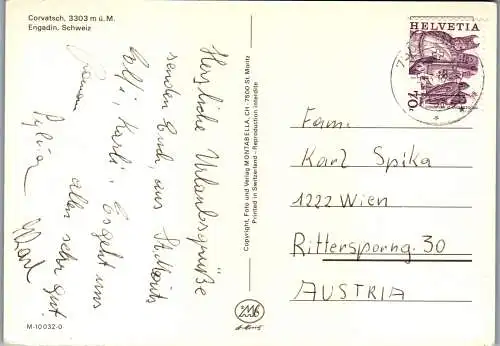 Corvatsch, 3303 m ü.M.
Engadin, Schweiz
Herzliche Urlaubsgrüße
senden Euch aus St. Moritz
Karli. Es geht uns
allen sehr gut.
Sylvia
Karl
M-10032-0
Copyright, Foto und Verlag MONTABELLA, CH-7500 St. Moritz
Printed in Switzerland – Reproduction interdite
HELVETIA
70
Fam.
Karl Spika
1222 Wien
Rittersporng. 30
AUSTRIA